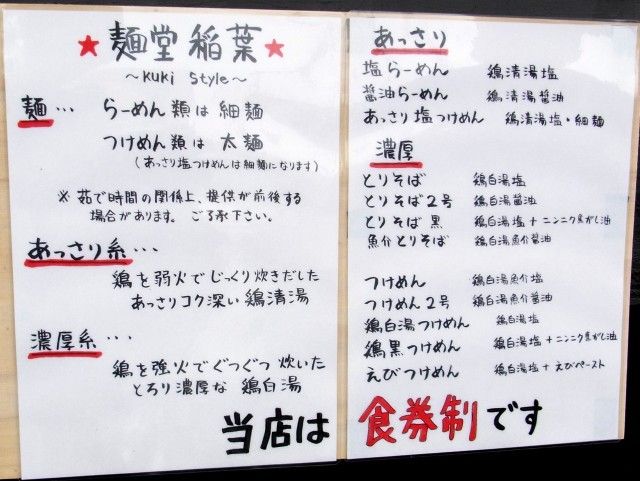 ★麺堂 稲葉★
～KUKI Style～
麺… らーめん類は細麺
つけめん類は 太麺
(あっさり塩つけめんは細麺になります)
※ 茹で時間の関係上、提供が前後する
場合があります。ご了承下さい。
あっさり系…
鶏を弱火でじっくり炊きだした
あっさりコク深い 鶏清湯
濃厚系…
鶏を強火でぐつぐつ 炊いた
とろり濃厚な 鶏白湯
当店は
あっさり
塩らーめん 鶏清湯塩
醤油らーめん 鶏清湯醤油
あっさり塩つけめん 鶏清湯塩・細麺
濃厚
とりそば 鶏白湯塩
とりそば2号 鶏白湯醤油
とりそば 黒 鶏白湯塩+ニンニク焦がし油
魚介とりそば 鶏白湯魚介醤油
つけめん 鶏白湯魚介塩
つけめん2号 鶏白湯魚介醤油
鶏白湯つけめん 鶏白湯塩
鶏黒つけめん 鶏白湯塩+ニンニク焦がし油
えびつけめん 鶏白湯塩+えびペースト
食券制です